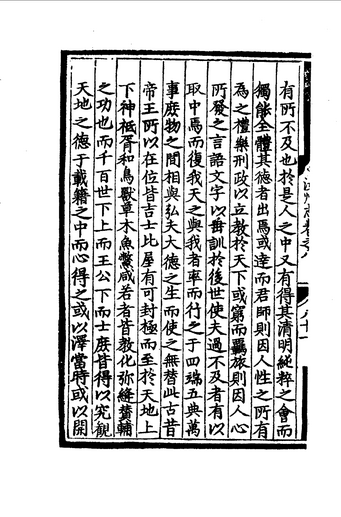 有所不及也於是人之中又有得其清明純粹之會而
獨能全體其德者出焉或達而君師則因人性之所有
為之禮樂刑政以立教於天下或窮而羈旅則因人心
所發之言語文字以垂訓於後世使夫過不及者有以
取中焉而復我天之與我者率而行之于四端五典萬
事庶物之間相與弘夫大德之生而使之無替此古昔
帝王所以在位皆吉士比屋有可封極而至於天地上
下神祗胥和鳥獸草木魚鱉咸若者皆教化彌縫贊輔
之功也而千百世下上而王公下而士庶皆得以究觀
天地之德于載籍之中而心得之或以澤當時或以開